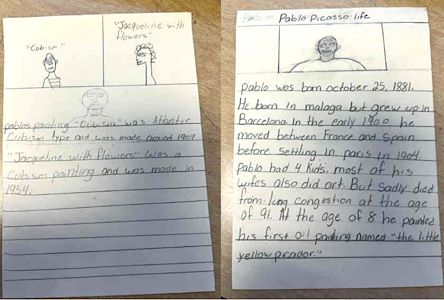 "Cubism"
"Jacqueline with
flowers"
pablos painting "Cubism" was Atlantic
Cubism type and was made around 1907
"Jacqueline with flowers" was a
Cubism painting and was made in
1954.
Pablo Picasso: life
pablo was born october 25, 1881.
He born in malaga but grew up in
Barcelona In the early 1900 he
moved between France and Spain
before settling in paris in 1904
Pablo had 4 kids. most of his
wifes also did art. But sadly died
from lung congestion at the age
of 91. At the age of 8 he painted
his first oil painting named "the little
yellow picador."